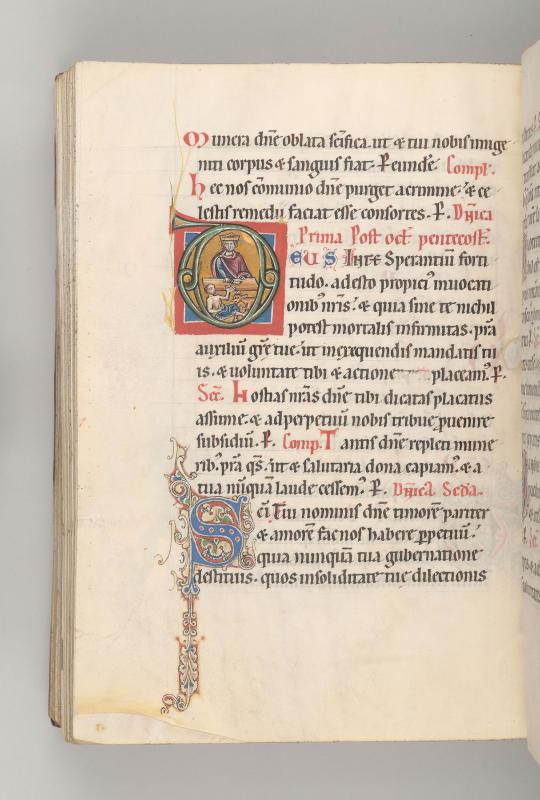 Munera dñe oblata sc̃ifica. ut & tui nobis unige
niti corpus & sanguis fiat. P̱ eunde̅. Compl̃.
Hec nos cõmunio dñe purget a crimine. & ce
lestis remedii faciat esse consortes. P̱. Dñica
Prima Post oct̃ pentecost̃.
DEUS IN te Sperantiũ forti
tudo. adesto propici᷒ inuocati
onib᷒ nr̃is. & quia sine te nichil
potest mortalis infirmitas. pr̃a
auxiliũ gr̃e tue. ut in exequendis mandatis tu
is. & uoluntate tibi & actione placeam᷒. P̱.
Sec̃. Hostias nr̃as dñe tibi dicatas placatus
assume. & ad perpetuũ nobis tribue ꝓuenire
subsidiũ. P̱. Comp̃. Tantis dñe repleti mune
rib᷒. pr̃a q̃s. ut & salutaria dona capiam᷒. & a
tua nũquã laude cessem᷒. P̱. Dñica Sc̃da.
Sc̃i Tui nominis dñe timorẽ pariter
& amorẽ fac nos habere ꝑpetuũ.
quia nunquã tua gubernatione
destituis. quos in soliditate tue dilectionis